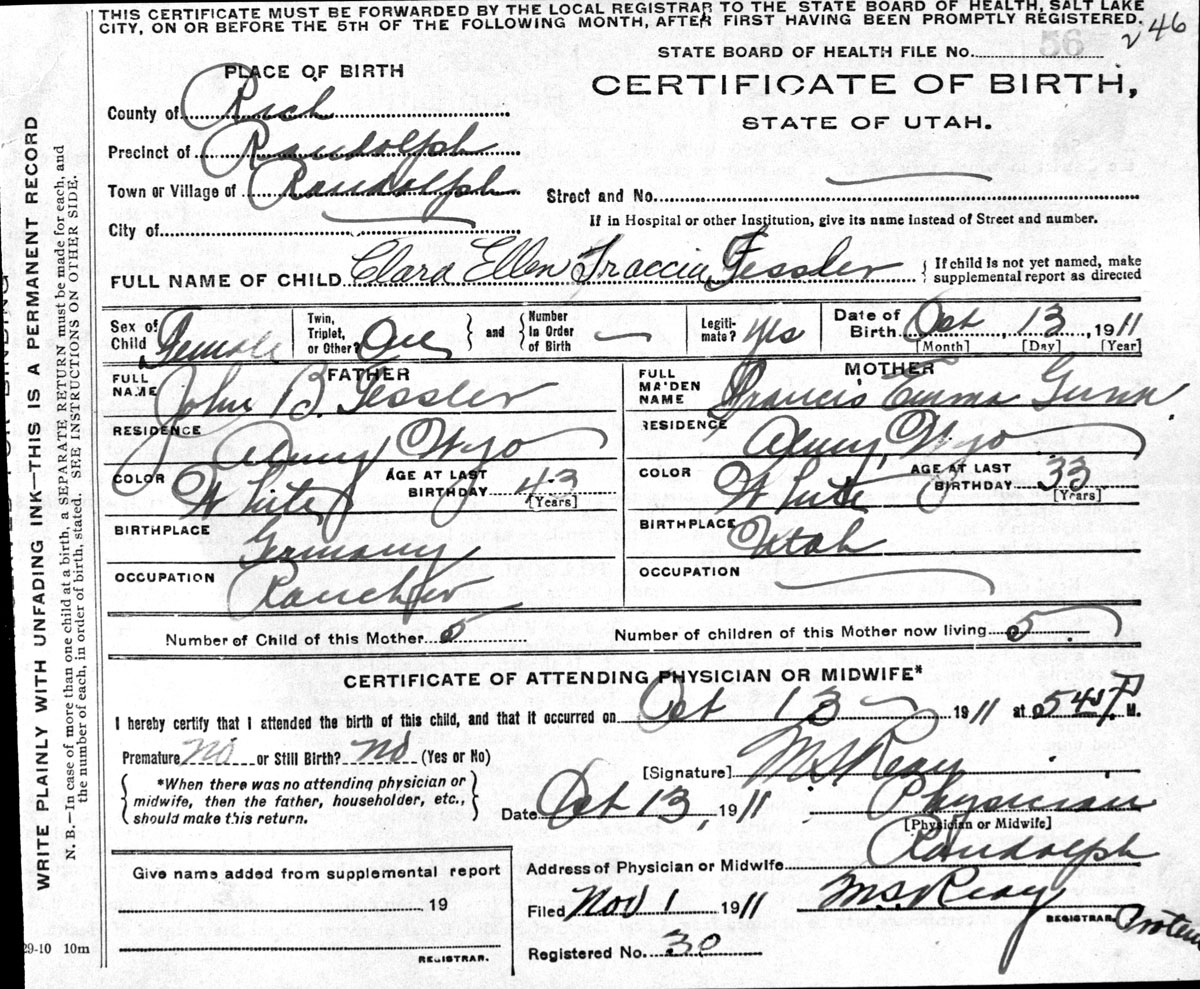 THIS CERTIFICATE MUST BE FORWARDED BY THE LOCAL REGISTRAR TO THE STATE BOARD OF HEALTH, SALT LAKE
CITY, ON OR BEFORE THE 5TH OF THE FOLLOWING MONTH, AFTER FIRST HAVING BEEN PROMPTLY REGISTERED.
246
STATE BOARD OF HEALTH FILE No. 56
CERTIFICATE OF BIRTH,
STATE OF UTAH.
PLACE OF BIRTH
County of Rich
Precinct of Randolph
Town or Village of Randolph
Street and No.
If in Hospital or other Institution, give its name instead of Street and number.
City of
FULL NAME OF CHILD Clara Ellen Fessler { If child is not yet named, make
supplemental report as directed
Sex of Child Female Twin, Triplet, or Other? One } and { Number in Order of Birth — Legiti-mate? yes Date of Birth Oct 13 1911
[Month] [Day] [Year]
FATHER MOTHER
FULL NAME John B. Fessler FULL MAIDEN NAME Francis Emma Gunn
RESIDENCE Almy Wyo RESIDENCE Almy, Wyo
COLOR White AGE AT LAST BIRTHDAY 43 [Years] COLOR White AGE AT LAST BIRTHDAY 33 [Years]
BIRTHPLACE Germany BIRTHPLACE Utah
OCCUPATION Rancher OCCUPATION
Number of Child of this Mother 5 Number of children of this Mother now living 5
CERTIFICATE OF ATTENDING PHYSICIAN OR MIDWIFE*
I hereby certify that I attended the birth of this child, and that it occurred on Oct 13 1911 at P M.
Premature No or Still Birth? No (Yes or No)
[Signature] M S Reay
*When there was no attending physician or
midwife, then the father, householder, etc.,
should make this return.
Date Oct 13, 1911 Physician
[Physician or Midwife]
Address of Physician or Midwife Randolph
Give name added from supplemental report
19
REGISTRAR.
Filed Nov 1 1911 M S Reay
REGISTRAR. Protem
Registered No. 30
29-10 10m
WRITE PLAINLY WITH UNFADING INK—THIS IS A PERMANENT RECORD
N. B.—In case of more than one child at a birth, a SEPARATE RETURN must be made for each, and
the number of each, in order of birth, stated. SEE INSTRUCTIONS ON OTHER SIDE.